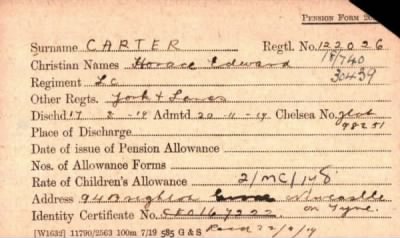 PENSION FORM 20
Surname CARTER Regtl. No. 122026
Christian Names Horace Edward 18/740
Regiment L.C. 30439
Other Regts. York & Lancs
Dischd 17 2 - 19 Admtd 20 - 11 - 19 Chelsea No.
Place of Discharge
Date of issue of Pension Allowance
Nos. of Allowance Forms
Rate of Children's Allowance 2/MC/
Address 94 Newcastle
on Tyne.
Identity Certificate No.
[W1632] 11790/2563 100m 7/19 585 G & S